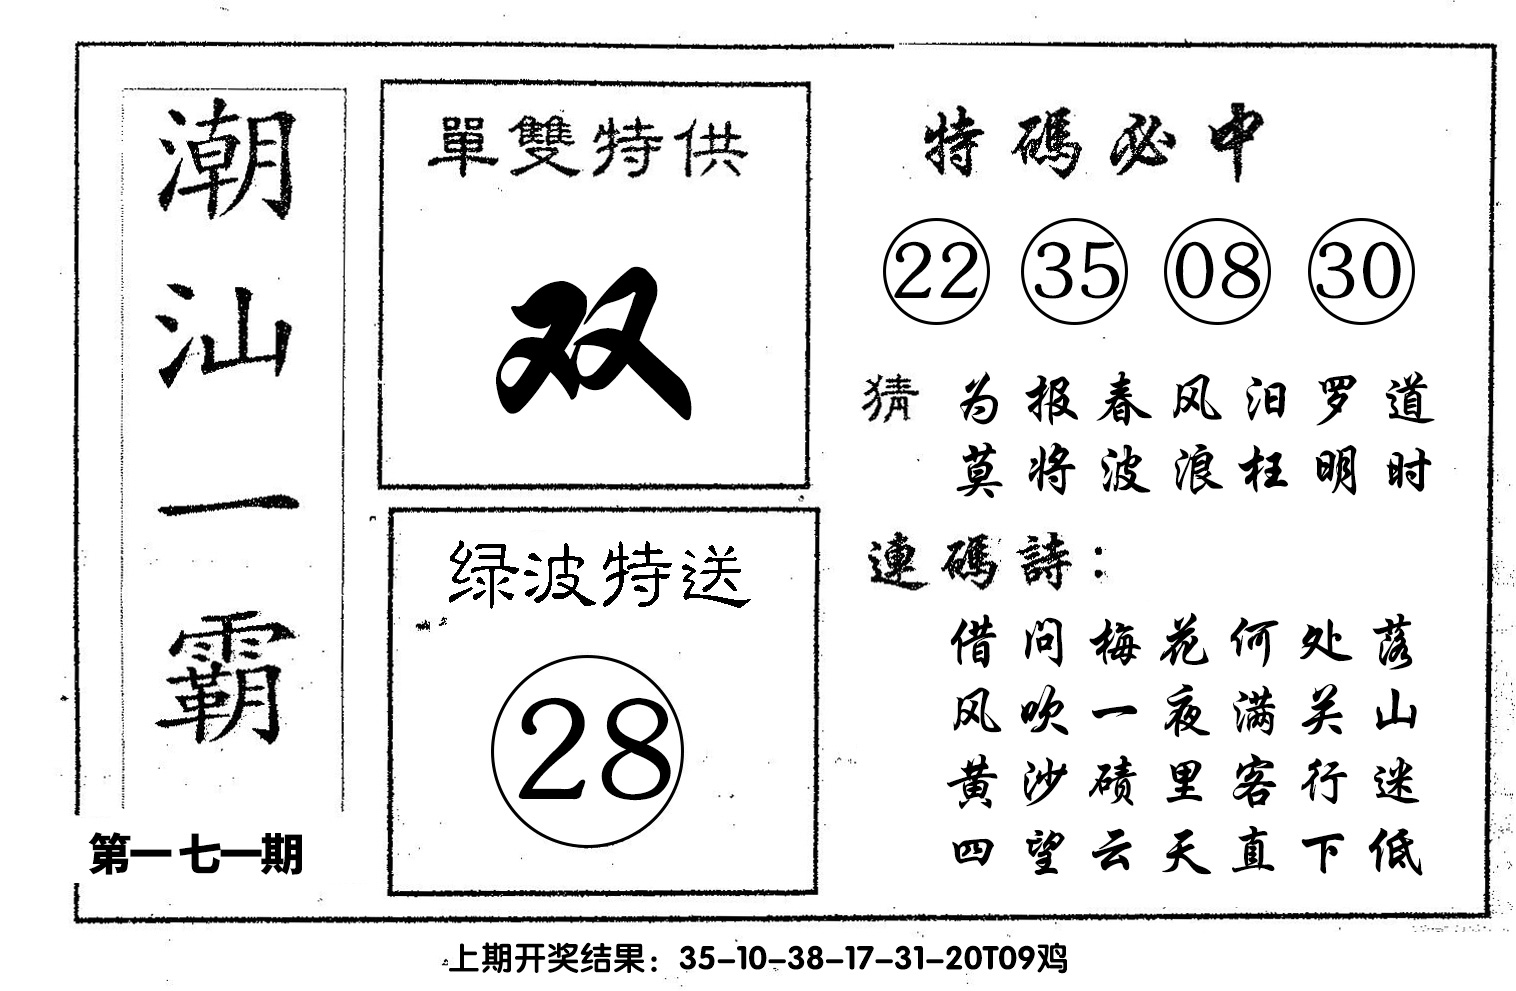 潮汕一霸
第一七一期
單雙特供
双
绿波特送
28
特碼必中
22 35 08 30
猜 为报春风汨罗道
莫将波浪枉明时
連碼詩：
借问梅花何处落
风吹一夜满关山
黄沙碛里客行迷
四望云天直下低
上期开奖结果：35-10-38-17-31-20T09鸡